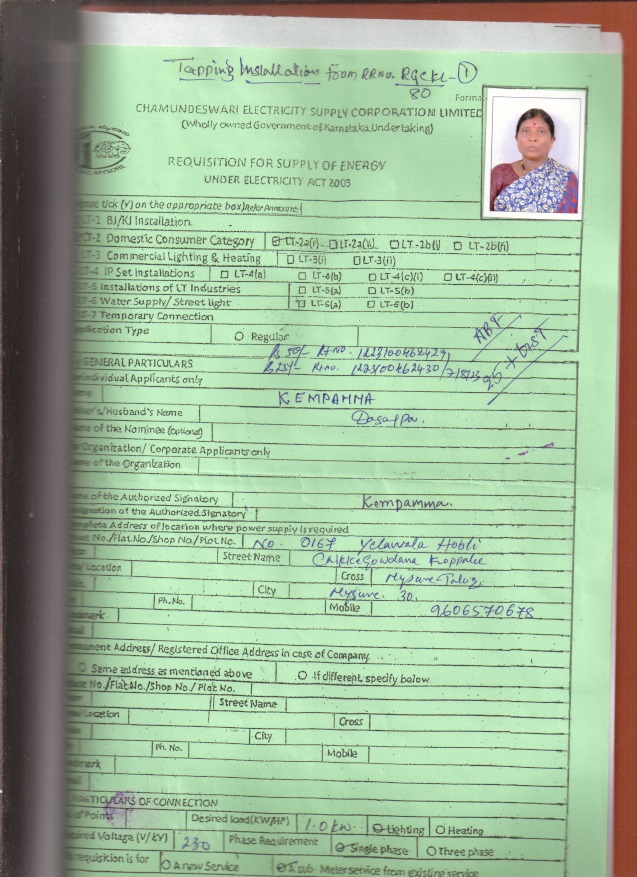 Tapping Installation from RR no. RGCKL- 1
80
Forma
CHAMUNDESWARI ELECTRICITY SUPPLY CORPORATION LIMITED
(Wholly owned Government of Karnataka Undertaking)
REQUISITION FOR SUPPLY OF ENERGY
UNDER ELECTRICITY ACT 2003
tick (√) on the appropriate box (Refer Annexure)
LT-1 BJ/KJ Installation
LT-2 Domestic Consumer Category LT-2a(i) LT-2a(ii) LT-2b(i) LT-2b(ii)
LT-3 Commercial Lighting & Heating LT-3(i) LT-3(ii)
LT-4 IP Set Installations LT-4(a) LT-4(b) LT-4(c)(i) LT-4(c)(ii)
LT-5 Installations of LT Industries LT-5(a) LT-5(b)
LT-6 Water Supply/ Street light LT-6(a) LT-6(b)
LT-7 Temporary Connection
Application Type Regular
GENERAL PARTICULARS
Individual Applicants only
Name KEMPAMMA
Father's/Husband's Name
Name of the Nominee (Optional)
Organization/ Corporate Applicants only
Name of the Organization
Name of the Authorized Signatory Kempamma.
Designation of the Authorized Signatory
Complete Address of location where power supply is required
House No./Flat No./Shop No./Plot No. No. 0167 Yelawala Hobli
Street Name Chikkegowdana Koppalu
Location Cross Mysure Taluq.
City Mysure. 30.
Ph.No. Mobile 9606570678
Landmark
Permanent Address/ Registered Office Address in case of Company
Same address as mentioned above If different, specify below
House No./Flat No./Shop No./ Plot No.
Street Name
Location Cross
City
Ph. No. Mobile
Landmark
PARTICULARS OF CONNECTION
of Points Desired load(KW/HP) 1.0 kw Lighting Heating
Required Voltage (V/ kV) 230 Phase Requirement Single phase Three phase
requisition is for A new Service A sub Meter service from existing service